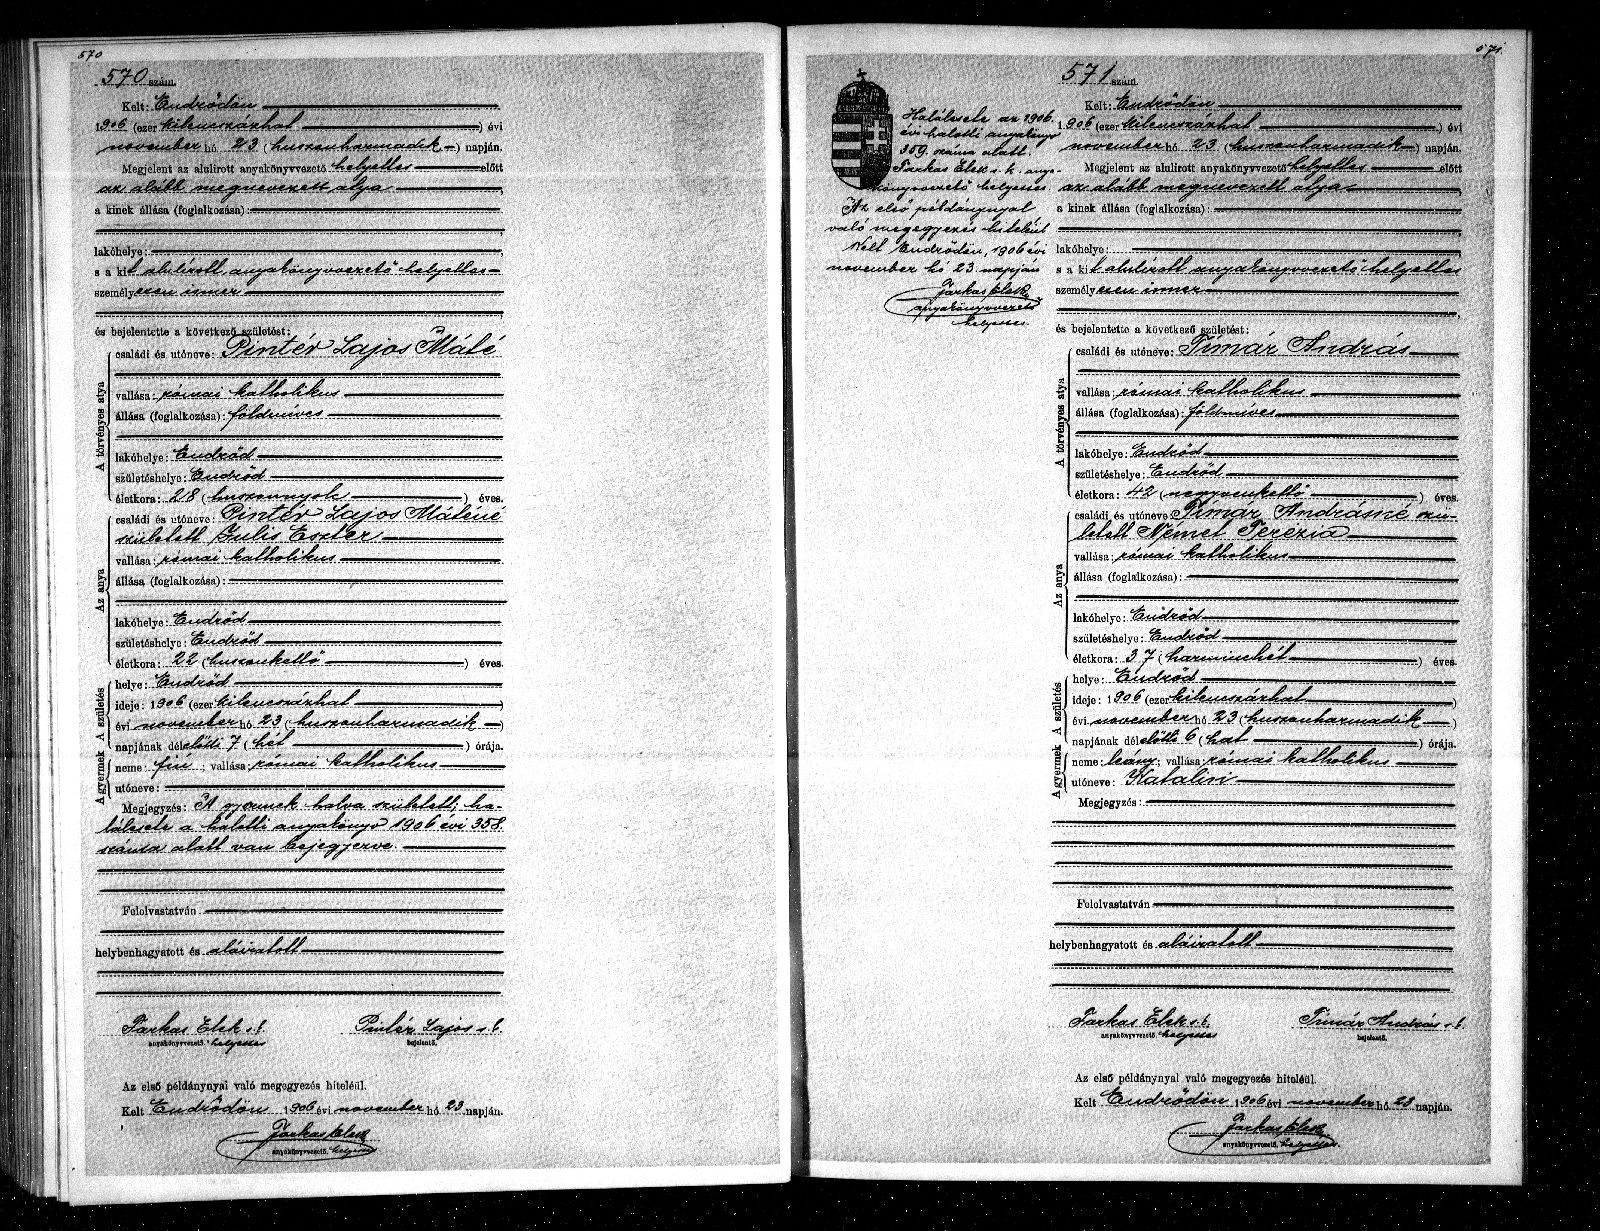 570
570 szám.
Kelt: Endrődön
1906 (ezer kilencszázhat) évi
november hó 23 (huszonharmadik) napján.
Megjelent az alulirott anyakönyvvezető helyettes előtt
az alább megnevezett atya,
a kinek állása (foglalkozása):
lakóhelye:
s a kit alulírott anyakönyvvezető helyettes
személyesen ismer
és bejelentette a következő születést:
A törvényes atya
családi és utóneve: Pintér Lajos Máté
vallása: római katholikus
állása (foglalkozása): földmíves
lakóhelye: Endrőd
születéshelye: Endrőd
életkora: 28 (huszonnyolc) éves.
Az anya
családi és utóneve: Pintér Lajos Máténé
született Gulis Eszter
vallása: római katholikus
állása (foglalkozása):
lakóhelye: Endrőd
születéshelye: Endrőd
életkora: 22 (huszonkettő) éves.
A születés
helye: Endrőd
ideje: 1906 (ezer kilencszázhat
évi november hó 23 (huszonharmadik)
napjának délelőtti 7 (hét) órája.
A gyermek
neme: fiú; vallása: római katholikus
utóneve:
Megjegyzés: A gyermek halva született; ha-
lálesete a halotti anyakönyv 1906 évi 358.
száma alatt van bejegyezve.
Felolvastatván
helybenhagyatott és aláiratott
Farkas Elek s. k. Pintér Lajos s. k.
anyakönyvvezető. helyettes bejelentő.
Az első példánynyal való megegyezés hiteléül.
Kelt Endrődön 1906 évi november hó 23 napján.
Farkas Elek
anyakönyvvezető. helyettes
571.
Halálesete az 1906.
évi halotti anyakönyv
359. száma alatt.
Farkas Elek s. k. anya-
könyvvezető helyettes
Az első példánynyal
való megegyezés hiteléül
Kelt Endrődön, 1906 évi
november hó 23. napján
Farkas Elek
anyakönyvvezető
helyettes
571 szám.
Kelt: Endrődön
1906 (ezer kilencszázhat) évi
november hó 23 (huszonharmadik) napján.
Megjelent az alulirott anyakönyvvezető helyettes előtt
az alább megnevezett atya,
a kinek állása (foglalkozása):
lakóhelye:
s a kit alulírott anyakönyvvezető helyettes
személyesen ismer
és bejelentette a következő születést:
A törvényes atya
családi és utóneve: Tímár András
vallása: római katholikus
állása (foglalkozása): földmíves
lakóhelye: Endrőd
születéshelye: Endrőd
életkora: 42 (negyvenkettő) éves.
Az anya
családi és utóneve: Tímár Andrásné szü-
letett Német Terézia
vallása: római katholikus
állása (foglalkozása):
lakóhelye: Endrőd
születéshelye: Endrőd
életkora: 37 (harminchét) éves.
A születés
helye: Endrőd
ideje: 1906 (ezer kilencszázhat
évi november hó 23 (huszonharmadik)
napjának délelőtti 6 (hat) órája.
A gyermek
neme: leány; vallása: római katholikus
utóneve: Katalin
Megjegyzés:
Felolvastatván
helybenhagyatott és aláiratott
Farkas Elek s. k. Tímár András s. k.
anyakönyvvezető. helyettes bejelentő.
Az első példánynyal való megegyezés hiteléül.
Kelt Endrődön 1906 évi november hó 23 napján.
Farkas Elek
anyakönyvvezető. helyettes